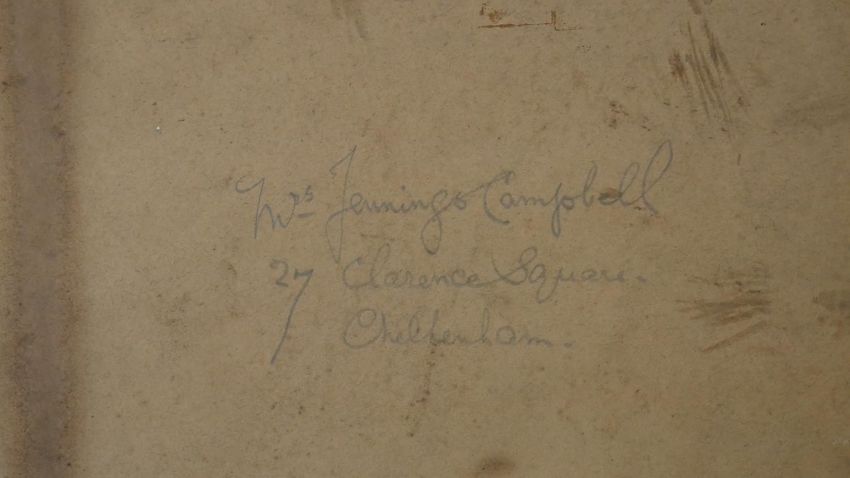 Mrs Jennings Campbell
27 Clarence Square.
Cheltenham.